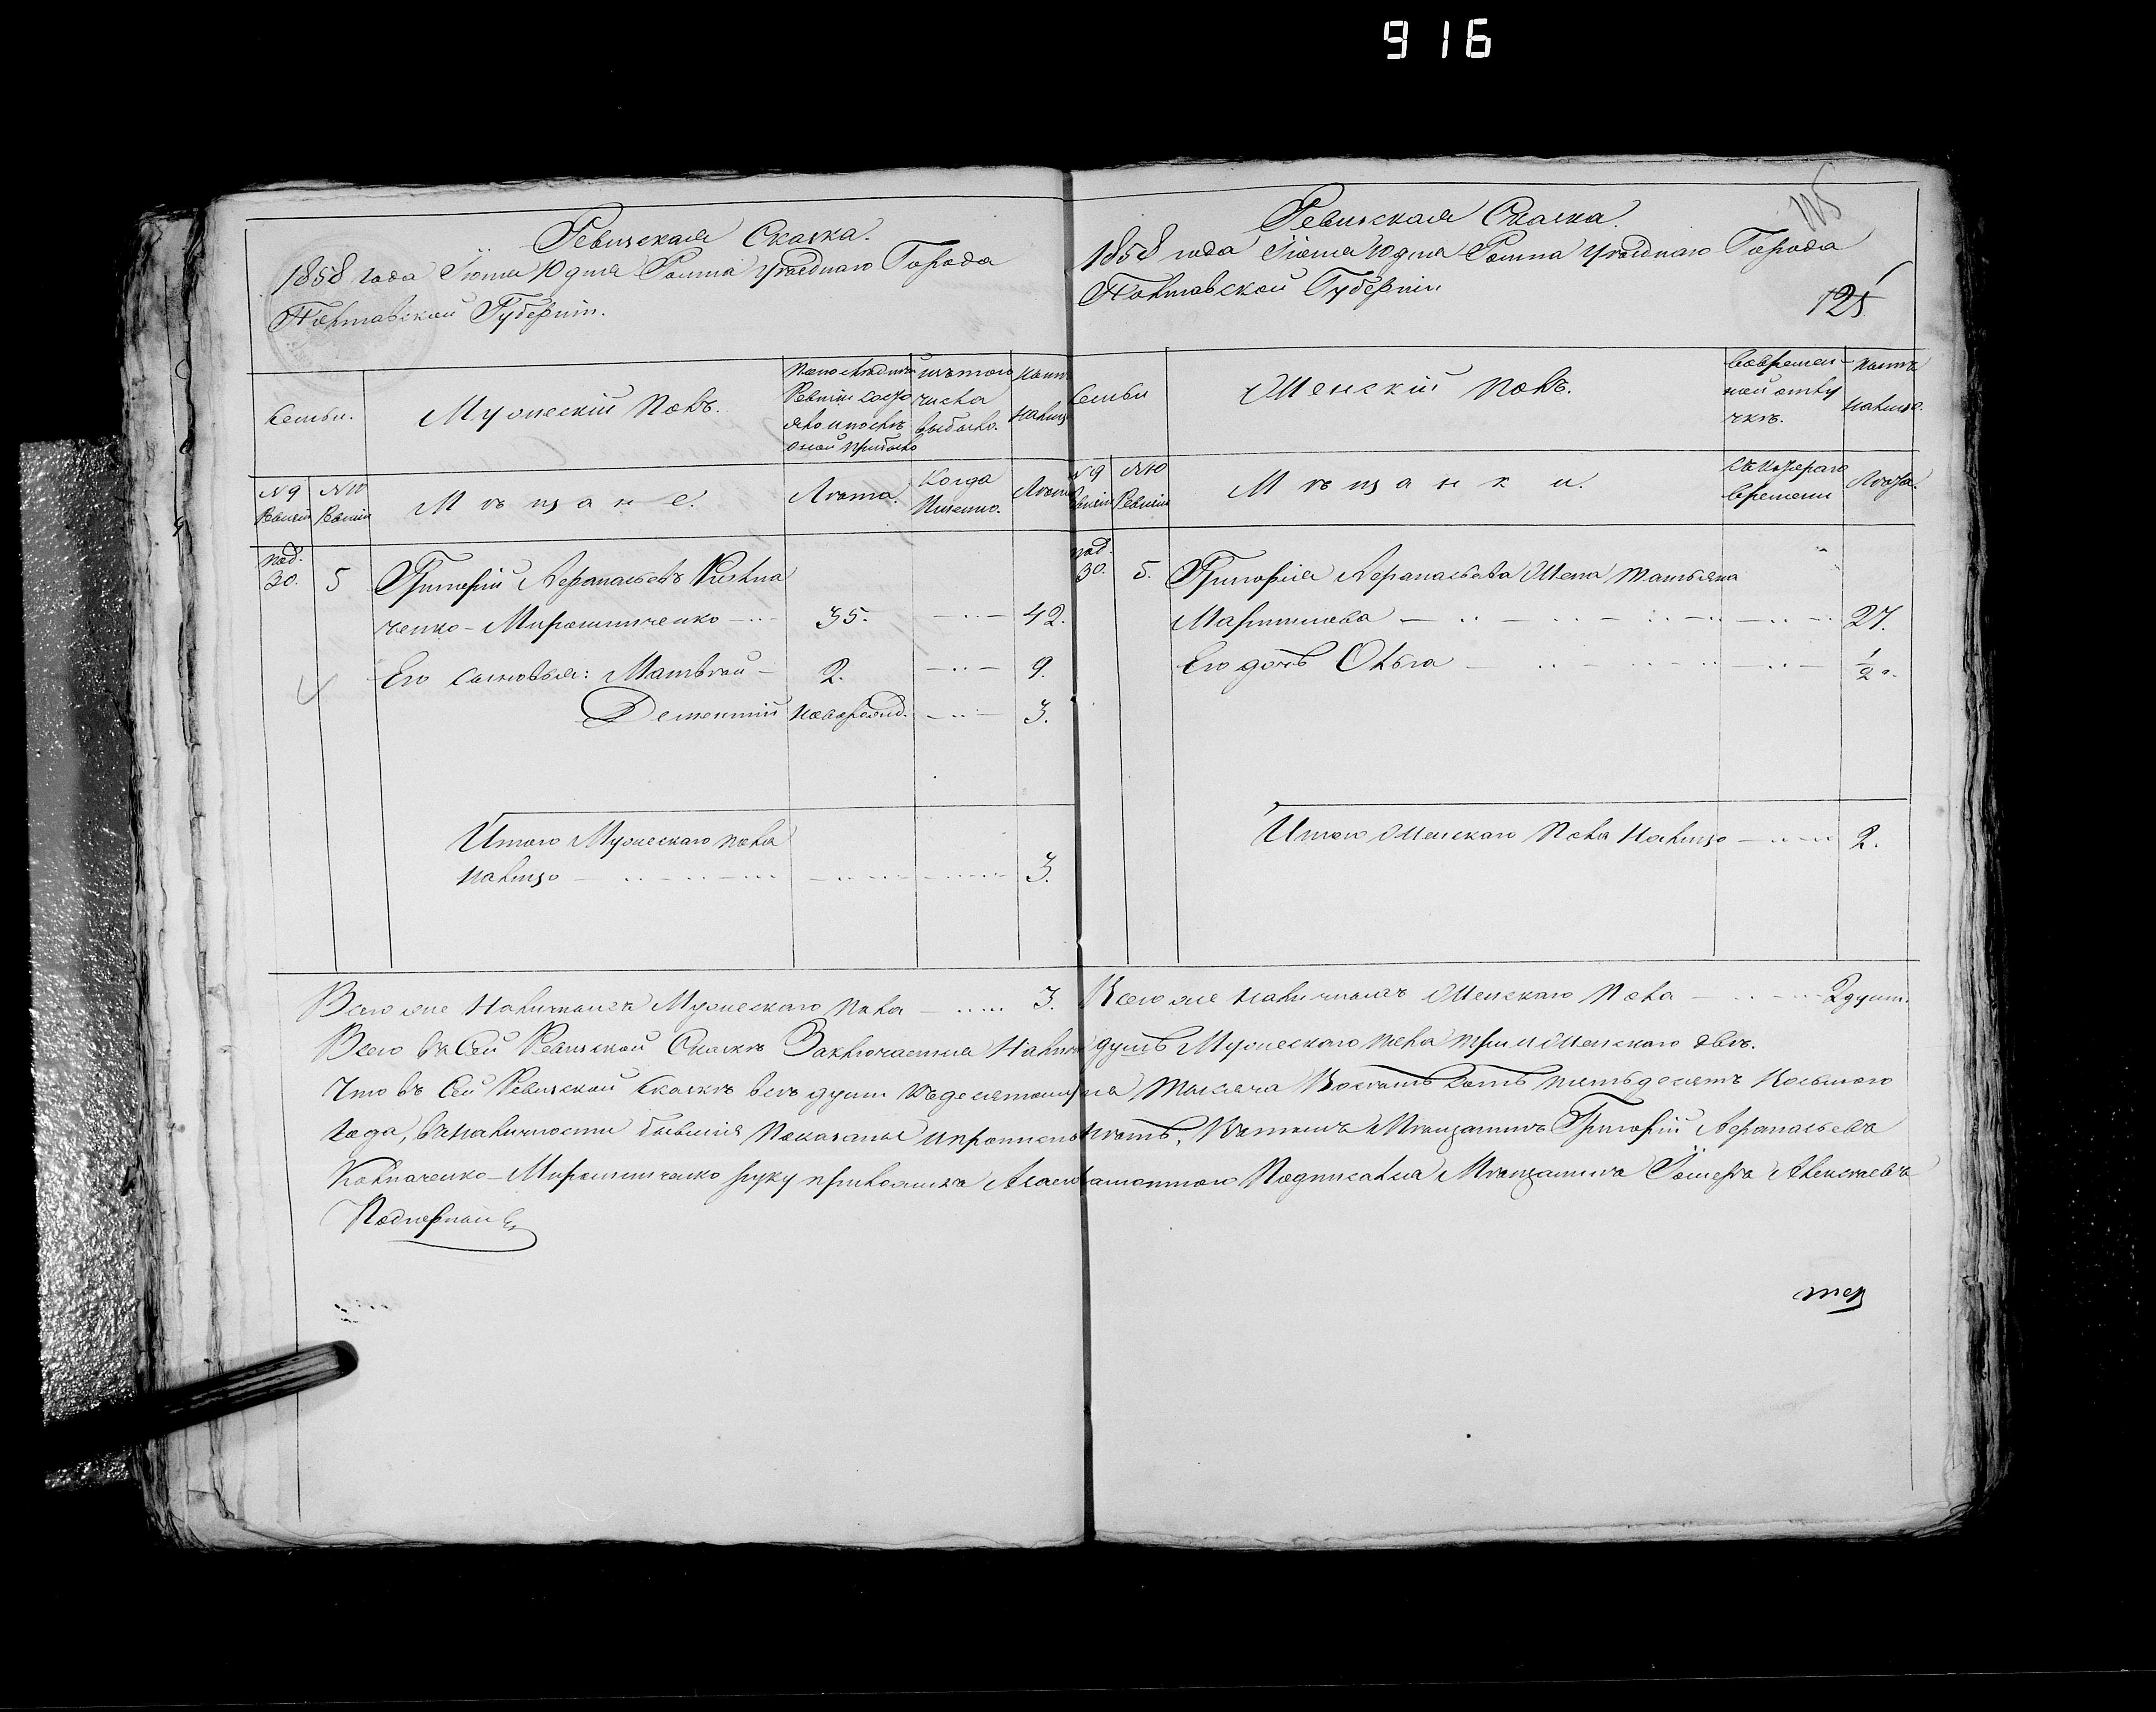 916
Ревизская Сказка.
1858 года Іюня 10 дня Ромна Уѣзднаго Города
Полтавской Губерніи.
Семьи.
Мужескій Полъ.
По последней Ревизіи состояло и послѣ оной прибыло
изъ того числа выбыло.
Нынѣ налицо
№ 9 Ревизіи
№ 10 Ревизіи
Мѣщане.
Лѣта.
Когда Именно.
Лѣта
под. 30.
5
Григорій Афанасьевъ
ченко-Мирошниченко
35.
42.
Его сыновья: Матвѣй
2.
9.
Дементій
новорожд.
3.
Итого Мужескаго пола
налицо
3.
Ревизская Сказка.
115
1858 года Іюня 10 дня Ромна Уѣзднаго Города
Полтавской Губерніи
125
Семьи
Женскій Полъ.
Во временной отлучкѣ.
Нынѣ налицо.
№ 9 Ревизіи
№ 10 Ревизіи
Мѣщанки.
Съ котораго времени
Лѣта.
под. 30.
5.
Григорія Афанасьева жена Татьяна
Мартинова
27.
Его дочь Ольга
1/2 г.
Итого Женскаго Пола Налицо
2.
Всего же Наличныхъ Мужескаго Пола 3. Всего же наличныхъ Женскаго Пола 2 душ.
Всего въ Сей Ревизской Сказкѣ Заключается Налицо душъ Мужескаго пола три и Женскаго двѣ.
Что въ Сей Ревизской Сказкѣ всѣ души къ десятому Іюня Тысяча Восемь Сотъ пятьдесятъ Восьмого
года, въ наличности бывшія Показаны и прописныхъ нѣтъ, Въ томъ Мѣщанинъ Григорій Афанасьевъ
Колпаченко-Мирошниченко руку приложилъ А за неграмотнаго Подписался Мѣщанинъ Алексѣевъ